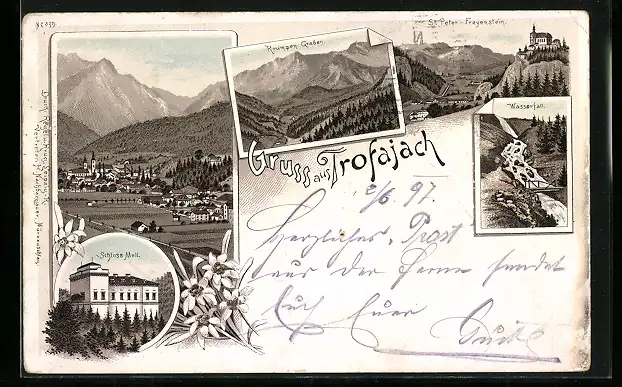 St. Peter - Freyenstein.
Krumpen Graben.
Wasserfall.
Gruss aus Trofajach
2/6 97.
Herzliches Prost
aus der Ferne sendet
Euch Euer
Schloss Mell.